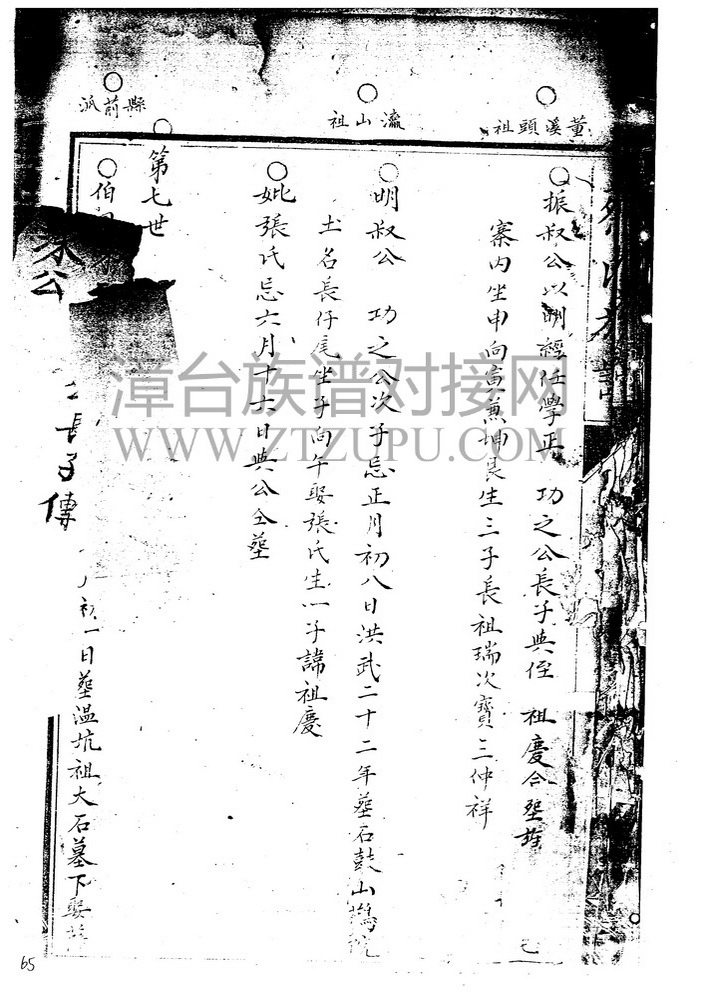 董溪頭祖
瀛山祖
縣前派
振叔公以明經任學正 功之公長子與侄 祖慶合塟
寨内坐申向寅兼坤艮生三子長祖瑞次寶三仲祥
明叔公 功之公次子忌正月初八日洪武二十二年塟石鼓山
土名長仔尾坐子向午娶張氏生一子諱祖慶
妣張氏忌六月十六日與公仝塟
第七世
伯
公
長子傳
初一日塟溫坑祖大石墓下娶
漳台族谱对接网
WWW.ZTZUPU.COM
65